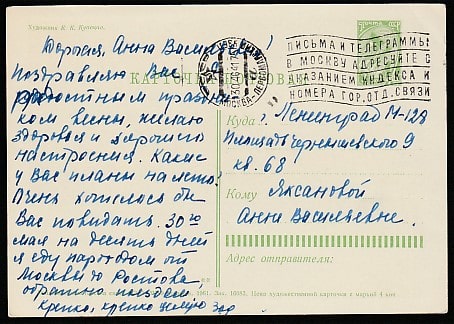 Художник Е. Н.
КАРТОЧКА
Дорогая, Анна Васильевна!
Поздравляю Вас с
радостным праздни
ком весны, желаю
здоровья и хорошего
настроения. Какие
у Вас планы на лето?
Очень хотелось бы
Вас повидать. 30го
мая на десять дней
я еду пароходом от
Москвы до Ростова,
обратно поездом
Крепко, крепко целую
МОСКВА
ПИСЬМА И ТЕЛЕГРАММЫ
В МОСКВУ АДРЕСУЙТЕ С
УКАЗАНИЕМ ИНДЕКСА И
НОМЕРА ГОР.ОТД.СВЯЗИ
Куда г. Ленинград М-128
Площадь Чернышевского 9
кв. 68
Кому Яксановой
Анне Васильевне.
Адрес отправителя:
1961. Зак. 10983. Цена художественной карточки с маркой 4 коп